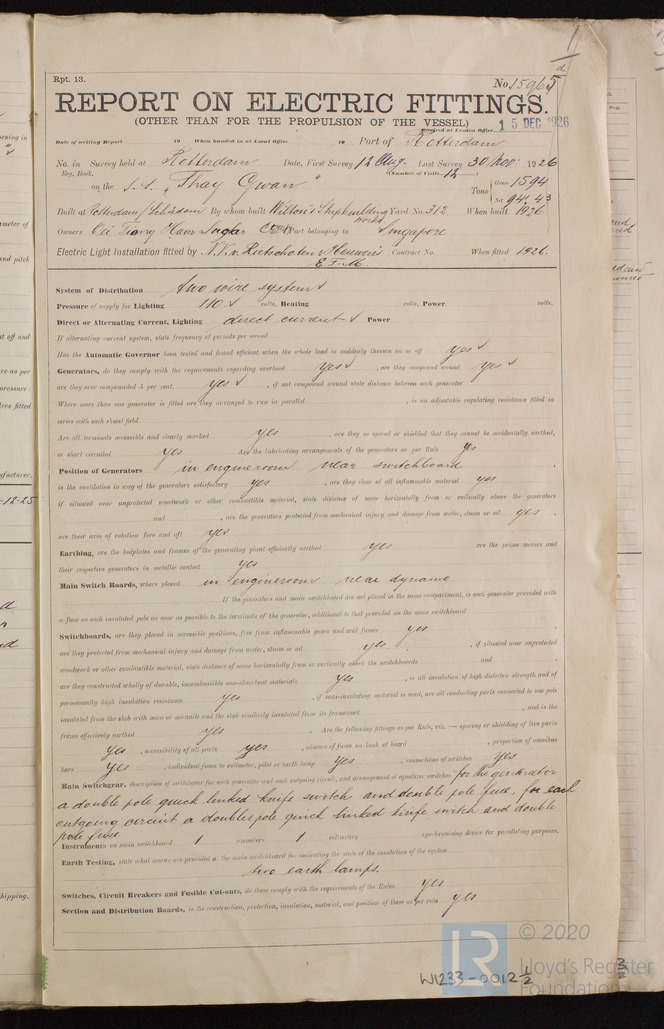 Rpt. 13.
No. 15965
REPORT ON ELECTRIC FITTINGS.
(OTHER THAN FOR THE PROPULSION OF THE VESSEL)
Received at London Office 15 DEC 1926
Date of writing Report 19 When handed in at Local Office 19 Port of Rotterdam
No. in Survey held at Rotterdam Date, First Survey 12 Aug. Last Survey 30 Nov. 1926
Reg. Book. (Number of Visits 12)
on the S.S. "Thay Gwan" Tons Gross 1594
Net 941.43
Built at Rotterdam/Schiedam By whom built Wilton's Shipbuilding Works Yard No. 312 When built 1926
Owners Oei Tiong Ham Sugar Port belonging to Singapore
Electric Light Installation fitted by N.V. v. Rietschoten & Houwens Contract No. When fitted 1926.
E.T.M.
System of Distribution two wire system
Pressure of supply for Lighting 110 volts, Heating volts, Power volts.
Direct or Alternating Current, Lighting direct current Power
If alternating current system, state frequency of periods per second
Has the Automatic Governor been tested and found efficient when the whole load is suddenly thrown on or off yes
Generators, do they comply with the requirements regarding overload yes, are they compound wound yes
are they over compounded 5 per cent. yes, if not compound wound state distance between each generator
Where more than one generator is fitted are they arranged to run in parallel , is an adjustable regulating resistance fitted in
series with each shunt field
Are all terminals accessible and clearly marked yes, are they so spaced or shielded that they cannot be accidentally earthed,
or short circuited yes Are the lubricating arrangements of the generators as per Rule yes
Position of Generators in engineroom near switchboard
is the ventilation in way of the generators satisfactory yes, are they clear of all inflammable material yes
if situated near unprotected woodwork or other combustible material, state distance of same horizontally from or vertically above the generators
and , are the generators protected from mechanical injury and damage from water, steam or oil yes
are their axis of rotation fore and aft yes
Earthing, are the bedplates and frames of the generating plant efficiently earthed yes are the prime movers and
their respective generators in metallic contact yes
Main Switch Boards, where placed in engineroom near dynamo
If the generators and main switchboard are not placed in the same compartment, is each generator provided with
a fuse on each insulated pole as near as possible to the terminals of the generator, additional to that provided on the main switchboard
Switchboards, are they placed in accessible positions, free from inflammable gases and acid fumes yes
are they protected from mechanical injury and damage from water, steam or oil yes, if situated near unprotected
woodwork or other combustible material, state distance of same horizontally from or vertically above the switchboards and
are they constructed wholly of durable, incombustible non-absorbent materials yes, is all insulation of high dielectric strength and of
permanently high insulation resistance yes, if semi-insulating material is used, are all conducting parts connected to one pole
insulated from the slab with mica or micanite and the slab similarly insulated from its framework , and is the
frame effectively earthed yes. Are the following fittings as per Rule, viz.:— spacing or shielding of live parts
yes, accessibility of all parts yes, absence of fuses on back of board , proportion of omnibus
bars yes, individual fuses to voltmeter, pilot or earth lamp yes, connections of switches yes
Main Switchgear, description of switchgear for each generator and each outgoing circuit, and arrangement of equalizer switches for the generator
a double pole quick linked knife switch and double pole fuse, for each
outgoing circuit a double pole quick linked knife switch and double
pole fuse.
Instruments on main switchboard 1 ammeters 1 voltmeters synchronising device for paralleling purposes.
Earth Testing, state what means are provided at the main switchboard for indicating the state of the insulation of the system
two earth lamps.
Switches, Circuit Breakers and Fusible Cut-outs, do these comply with the requirements of the Rules yes
Section and Distribution Boards, is the construction, protection, insulation, material, and position of these as per rule yes
© 2020
Lloyd's Register
Foundation
W1233-0012 1/2